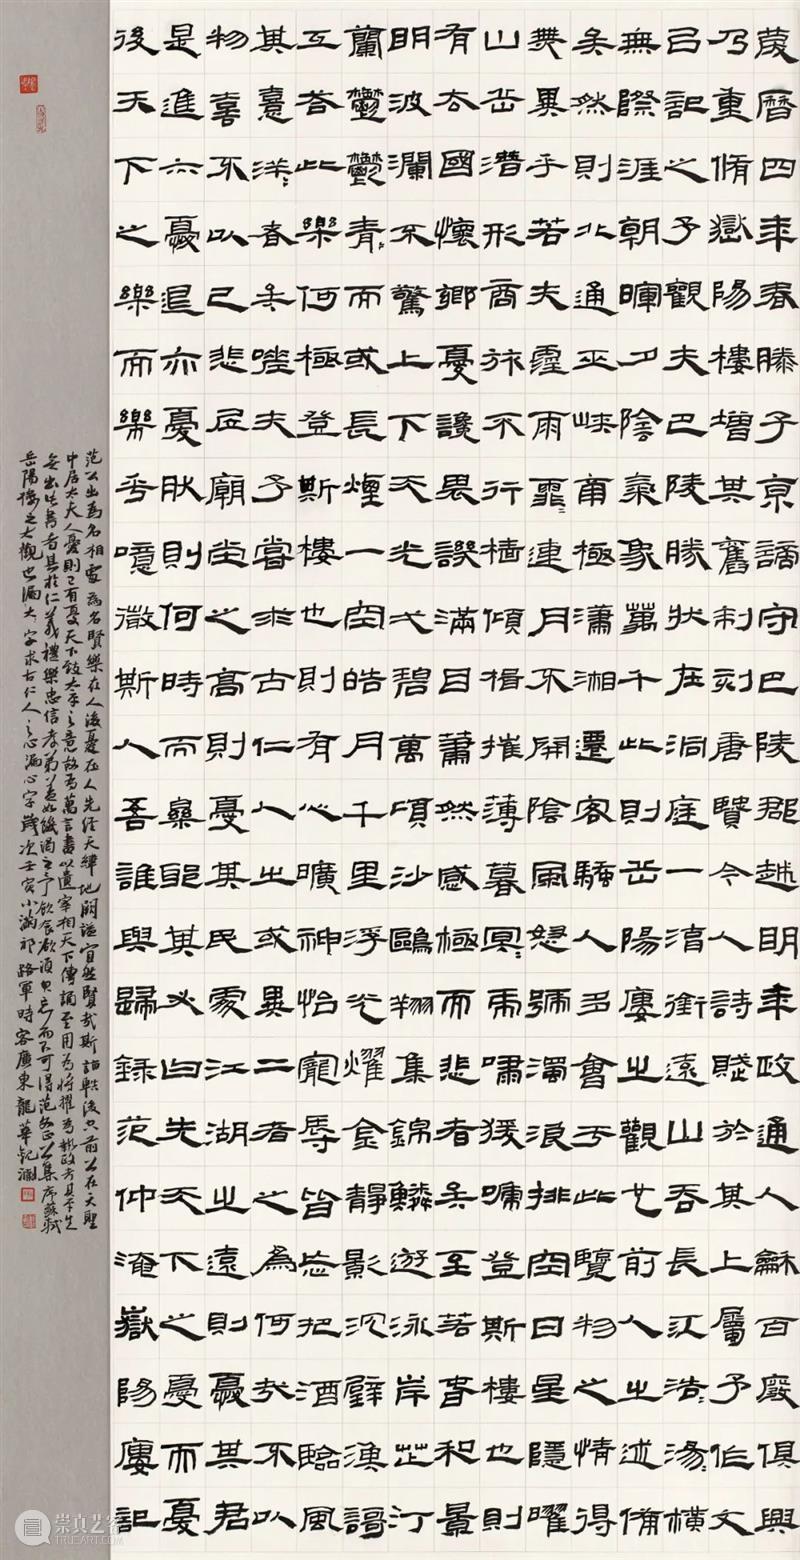 慶曆四年春滕子京謫守巴陵郡越明年政通人龢百廢俱興
乃重脩嶽陽樓增其舊制刻唐賢今人詩賦於其上屬予作文
以記之予觀夫巴陵勝狀在洞庭一湖銜遠山吞長江浩=湯=橫
無際涯朝暉夕陰氣象萬千此則岳陽樓之觀也前人之述備
矣然則北通巫峽南極瀟湘遷客騷人多會于此覽物之情得
無異乎若夫霪雨霏=連月不開陰風怒號濁浪排空日星隱曜
山岳潛形商旅不行檣傾楫摧薄暮冥=虎嘯猨嗁登斯樓也則
有去國懷鄉憂讒畏譏滿目蕭然感極而悲者矣至若春和景
明波瀾不驚上下天光弌碧萬頃沙鷗翔集錦鱗遊泳岸芷汀
蘭鬱鬱青=而或長煙一空皓月千里浮光耀金靜影沉璧漁謌
互答此樂何極登斯樓也則有心曠神怡寵辱皆忘把酒臨風
其憙洋=者矣嗟夫予嘗求古仁人之或異二者之為何哉不以
物喜不以己悲居廟堂之高則憂其民處江湖之遠則憂其君
是進亦憂退亦憂然則何時而樂耶其必曰先天下之憂而憂
後天下之樂而樂乎噫微斯人吾誰與歸錄范仲淹嶽陽樓記
范公出為名相處為名賢樂在人後憂在人先經天緯地闕謚宜然賢哉斯詣軼後空前公在天聖
中居太夫人憂則已有憂天下致太平之意故為萬言書以遺宰相天下傳誦至用為將擢為執政考其平生
無出此書者其於仁義禮樂忠信孝弟蓋如飢渴之於飲食欲須臾忘而不可得范文正公集序蘇軾
岳陽樓之大觀也漏大字求古仁人之心漏心字歲次壬寅小滿祁路軍時客廣東龍華記
崇真艺客